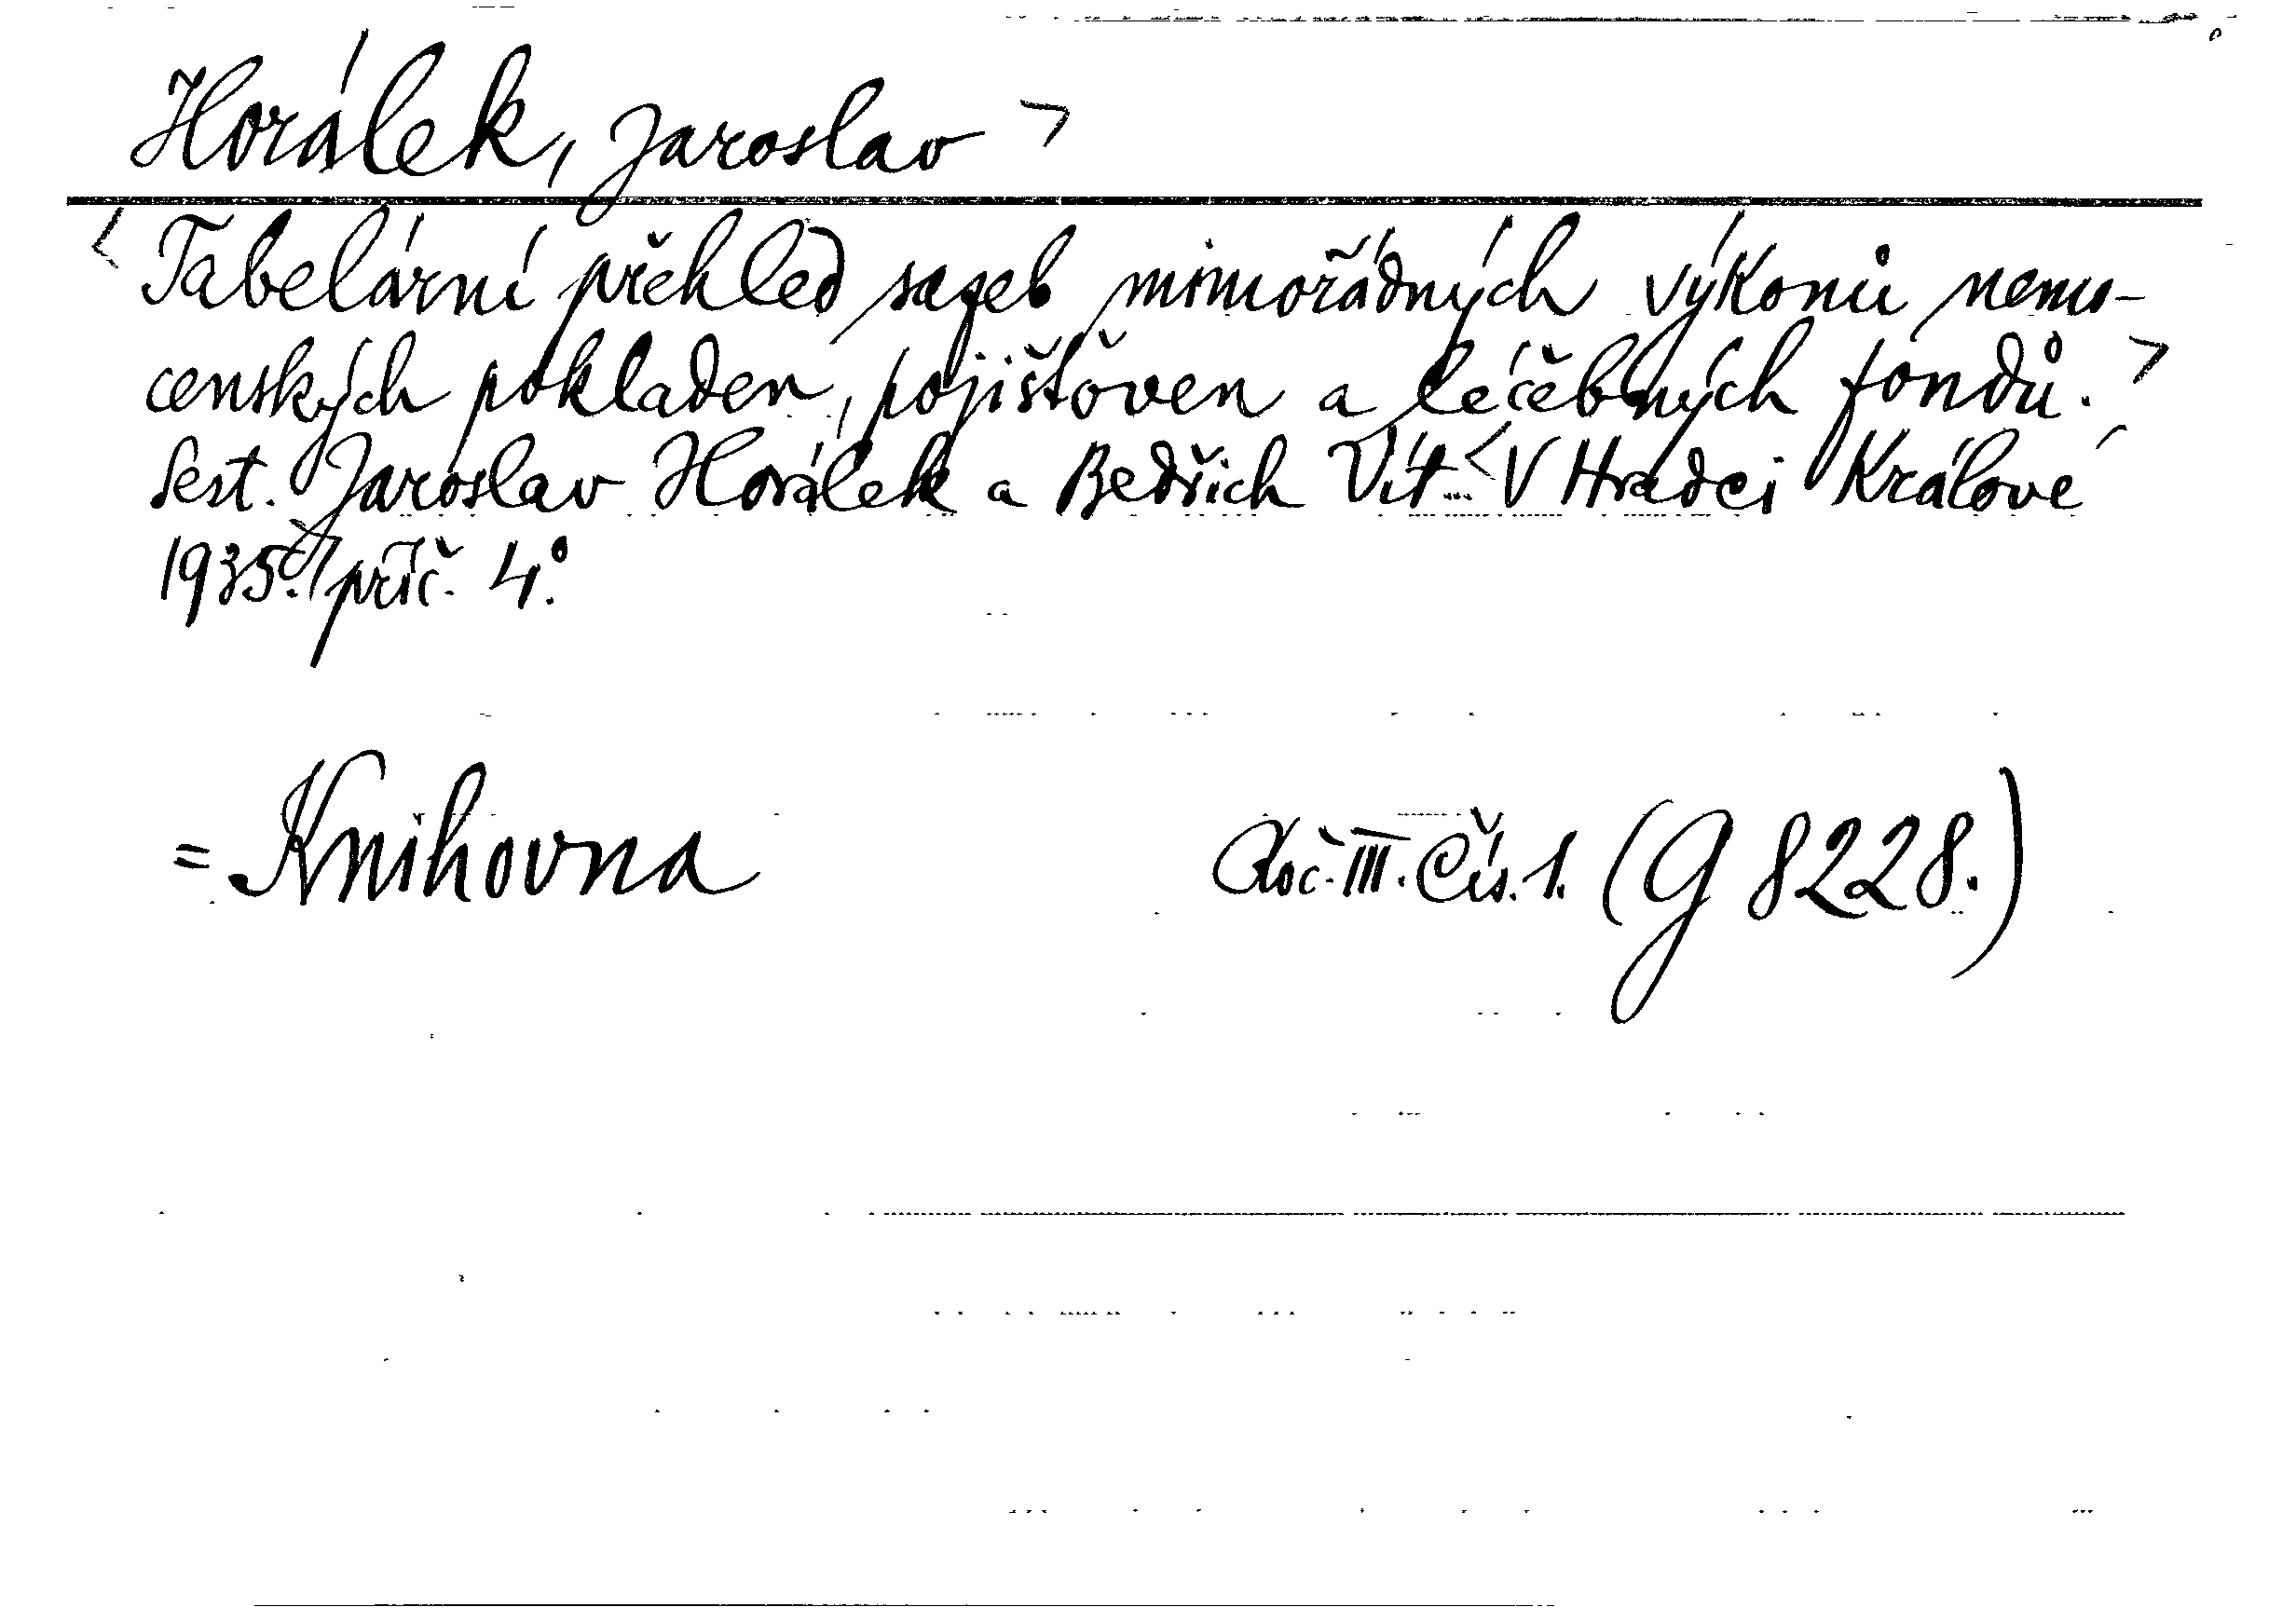 Horálek, Jaroslav >
< Tabelární přehled sazeb mimořádných výkonů nemo-
cenských pokladen, pojišťoven a léčebných fondů. >
Sest. Jaroslav Horálek a Bedřich Vít. < V Hradci Králové
1935. > příč. 4°.
= Knihovna Roč. III. Čís. 1. (G 8228.)